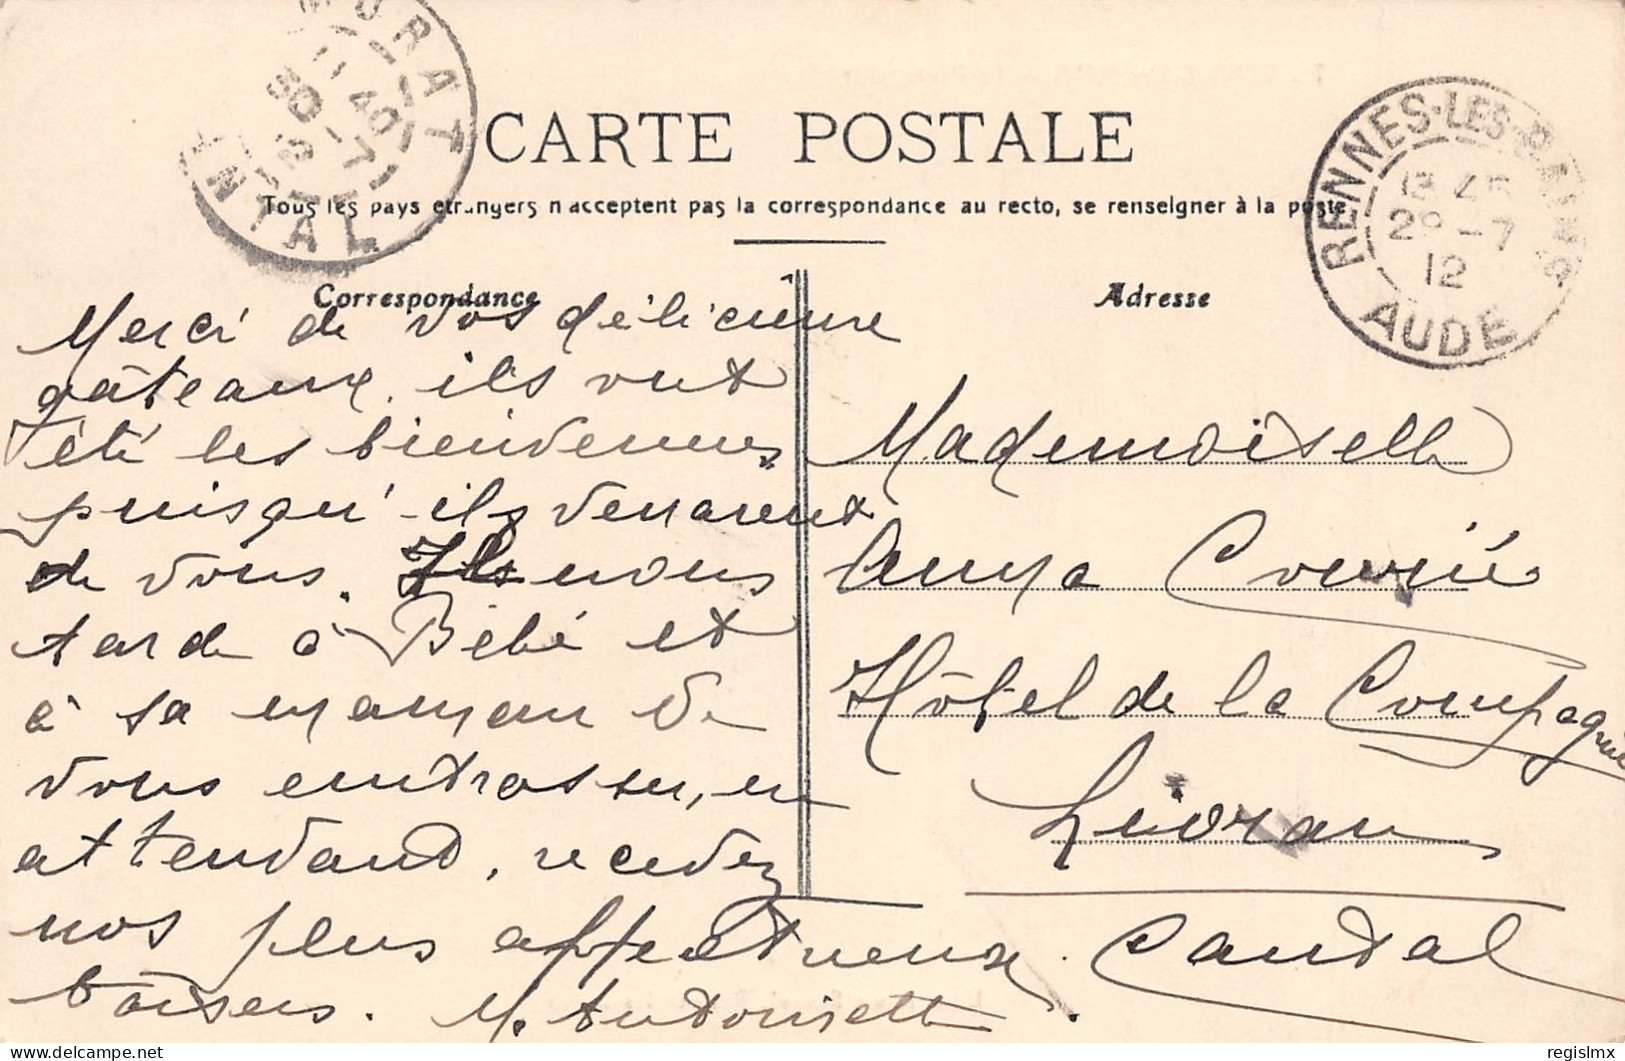 CARTE POSTALE
Tous les pays étrangers n'acceptent pas la correspondance au recto, se renseigner à la poste
Correspondance
Adresse
MURAT
11 40
30 -7
12
CANTAL
RENNES-LES-BAINS
13 45
29-7
12
AUDE
Merci de vos délicieux
gâteaux, ils ont
été les bienvenus
puisqu'ils venaient
de vous. Il nous
tarde à Bébé et
à sa maman de
vous embrasser, en
attendant, recevez
nos plus affectueux
baisers. M. Antoinette
Mademoiselle
Hôtel de la Compagnie
Lioran
Cantal
delcampe.net
regislmx